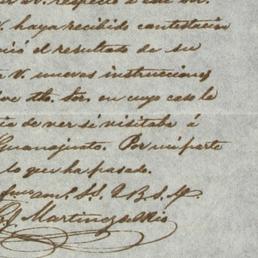 respecto a ese Sr.
V. haya recibido contestación
el resultado de su
a V. nuevas instrucciones
dho. Sor. en cuyo caso le
de ver si visitaba á
Guanajuato. Por mi parte
lo que ha pasado.
S. S. Q. B. S. M.
Martinez del Rio